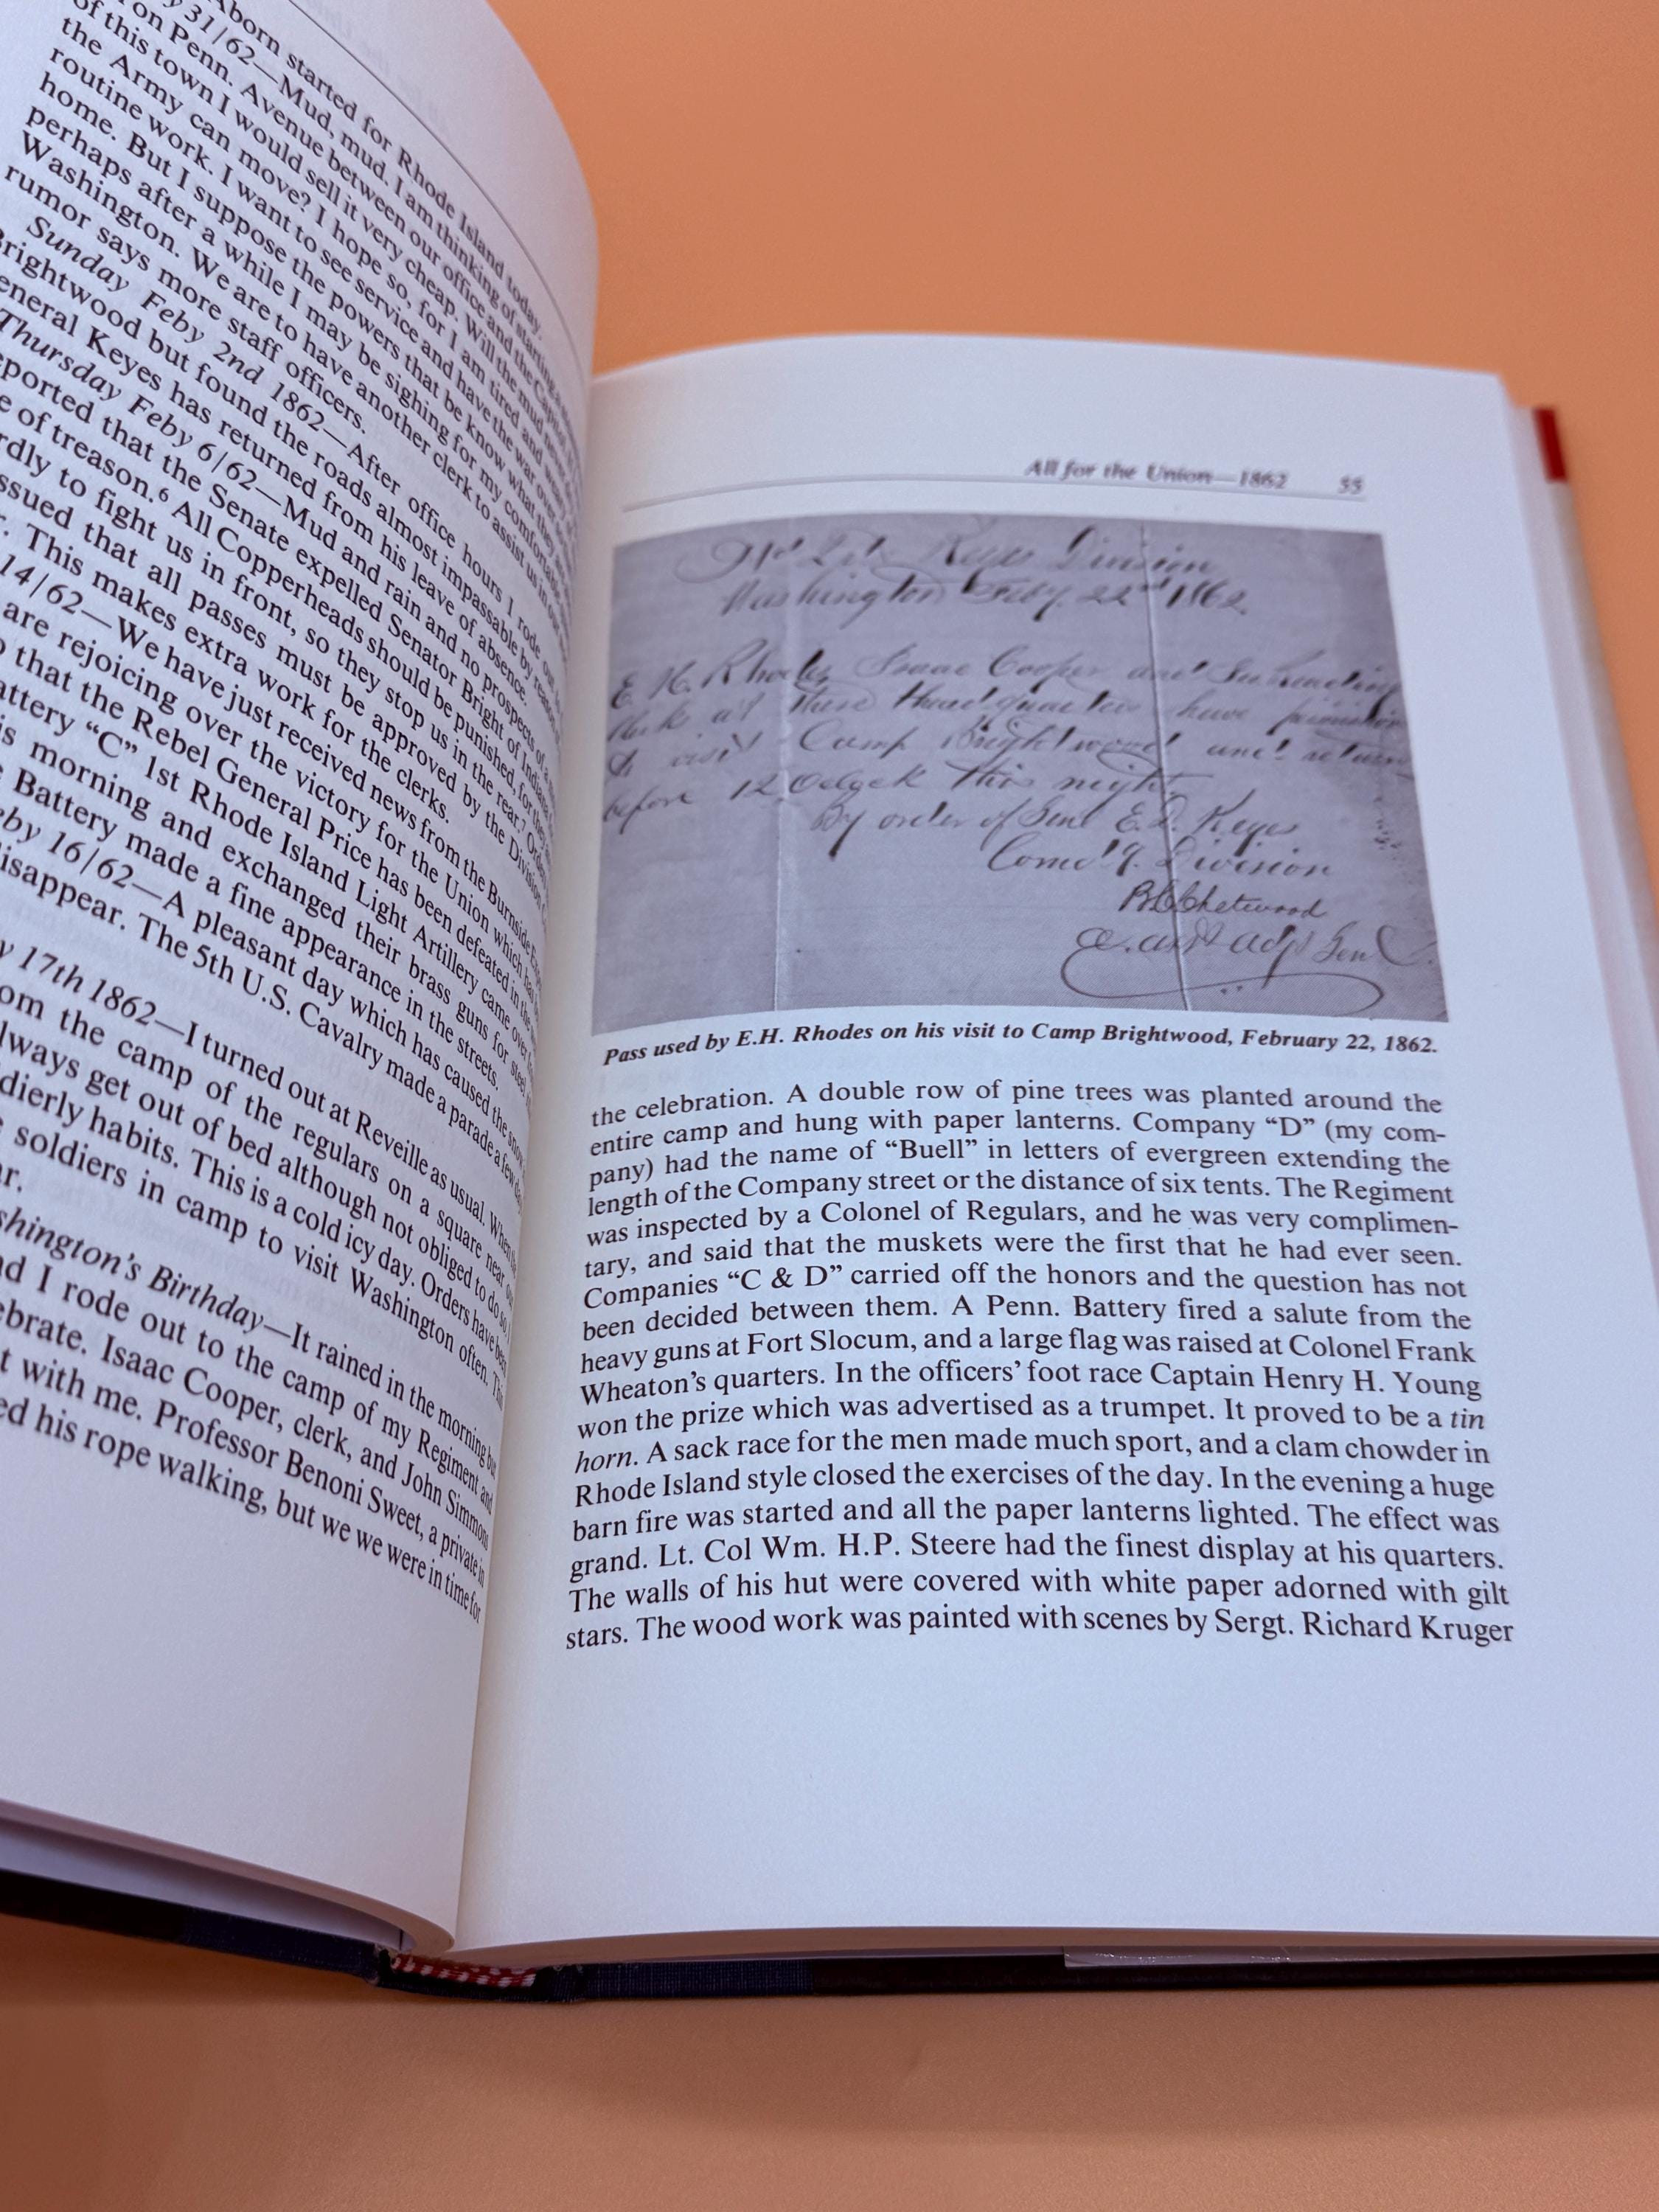 Aborn started for Rhode Island today.
y 31/62—Mud, mud. I am thinking of starting a
on Penn. Avenue between our office and the Capitol
of this town I would sell it very cheap. Will the mud never
the Army can move? I hope so, for I am tired and weary of
routine work. I want to see service and have the war over
home. But I suppose the powers that be know what they
perhaps after a while I may be sighing for my comfortable
Washington. We are to have another clerk to assist us in our
rumor says more staff officers.
Sunday Feby 2nd 1862—After office hours I rode out
Brightwood but found the roads almost impassable by reason
General Keyes has returned from his leave of absence.
Thursday Feby 6/62—Mud and rain and no prospects of a
eported that the Senate expelled Senator Bright of Indiana
e of treason.⁶ All Copperheads should be punished, for they
rdly to fight us in front, so they stop us in the rear.⁷ Orders
ssued that all passes must be approved by the Division
r. This makes extra work for the clerks.
14/62—We have just received news from the Burnside
are rejoicing over the victory for the Union which has
o that the Rebel General Price has been defeated in the
attery “C” 1st Rhode Island Light Artillery came over
is morning and exchanged their brass guns for steel
e Battery made a fine appearance in the streets.
eby 16/62—A pleasant day which has caused the snow
disappear. The 5th U.S. Cavalry made a parade a few days
y 17th 1862—I turned out at Reveille as usual. When
om the camp of the regulars on a square near our
lways get out of bed although not obliged to do so. I
dierly habits. This is a cold icy day. Orders have been
e soldiers in camp to visit Washington often. This
ar.
shington’s Birthday—It rained in the morning but
nd I rode out to the camp of my Regiment and
ebrate. Isaac Cooper, clerk, and John Simmons
t with me. Professor Benoni Sweet, a private in
ed his rope walking, but we we were in time for
All for the Union—1862 55
Keyes Division
Washington Feby. 22nd 1862
E. H. Rhodes Isaac Cooper and
Clerks at these Headquarters have permission
to visit Camp Brightwood and return
before 12 Oclock this night.
By order of Genl E. D. Keyes
Comd'g. Division
Chetwood
a. asst adjt Genl
Pass used by E.H. Rhodes on his visit to Camp Brightwood, February 22, 1862.
the celebration. A double row of pine trees was planted around the
entire camp and hung with paper lanterns. Company “D” (my com-
pany) had the name of “Buell” in letters of evergreen extending the
length of the Company street or the distance of six tents. The Regiment
was inspected by a Colonel of Regulars, and he was very complimen-
tary, and said that the muskets were the first that he had ever seen.
Companies “C & D” carried off the honors and the question has not
been decided between them. A Penn. Battery fired a salute from the
heavy guns at Fort Slocum, and a large flag was raised at Colonel Frank
Wheaton’s quarters. In the officers’ foot race Captain Henry H. Young
won the prize which was advertised as a trumpet. It proved to be a tin
horn. A sack race for the men made much sport, and a clam chowder in
Rhode Island style closed the exercises of the day. In the evening a huge
barn fire was started and all the paper lanterns lighted. The effect was
grand. Lt. Col Wm. H.P. Steere had the finest display at his quarters.
The walls of his hut were covered with white paper adorned with gilt
stars. The wood work was painted with scenes by Sergt. Richard Kruger